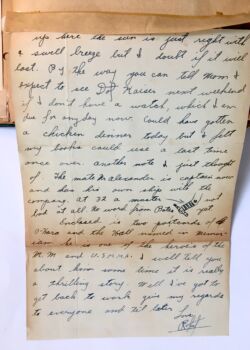 up here the sun is just right with
a swell breeze but I doubt if it will
last. By the way you can tell Mom I
expect to see Kaiser next weekend
if I don't have a watch, which I am
due for any day now. Could have gotten
a chicken dinner today but I felt
my books could use a last time
once over. Another note I just thought
of. The mate M. Alexander is captain now
and has his own ship with the
company. At 32 a master not
bad at all. No word from Bates yet
Enclosed is two postcards of
O'Hara and the Hall named in memor-
iam he is one of the heroes of the
M.M and U.S.M.M.A. I will tell you
about him some time it is really
a thrilling story. Well I've got to
get back to work give my regards
to everyone and til later
Love,